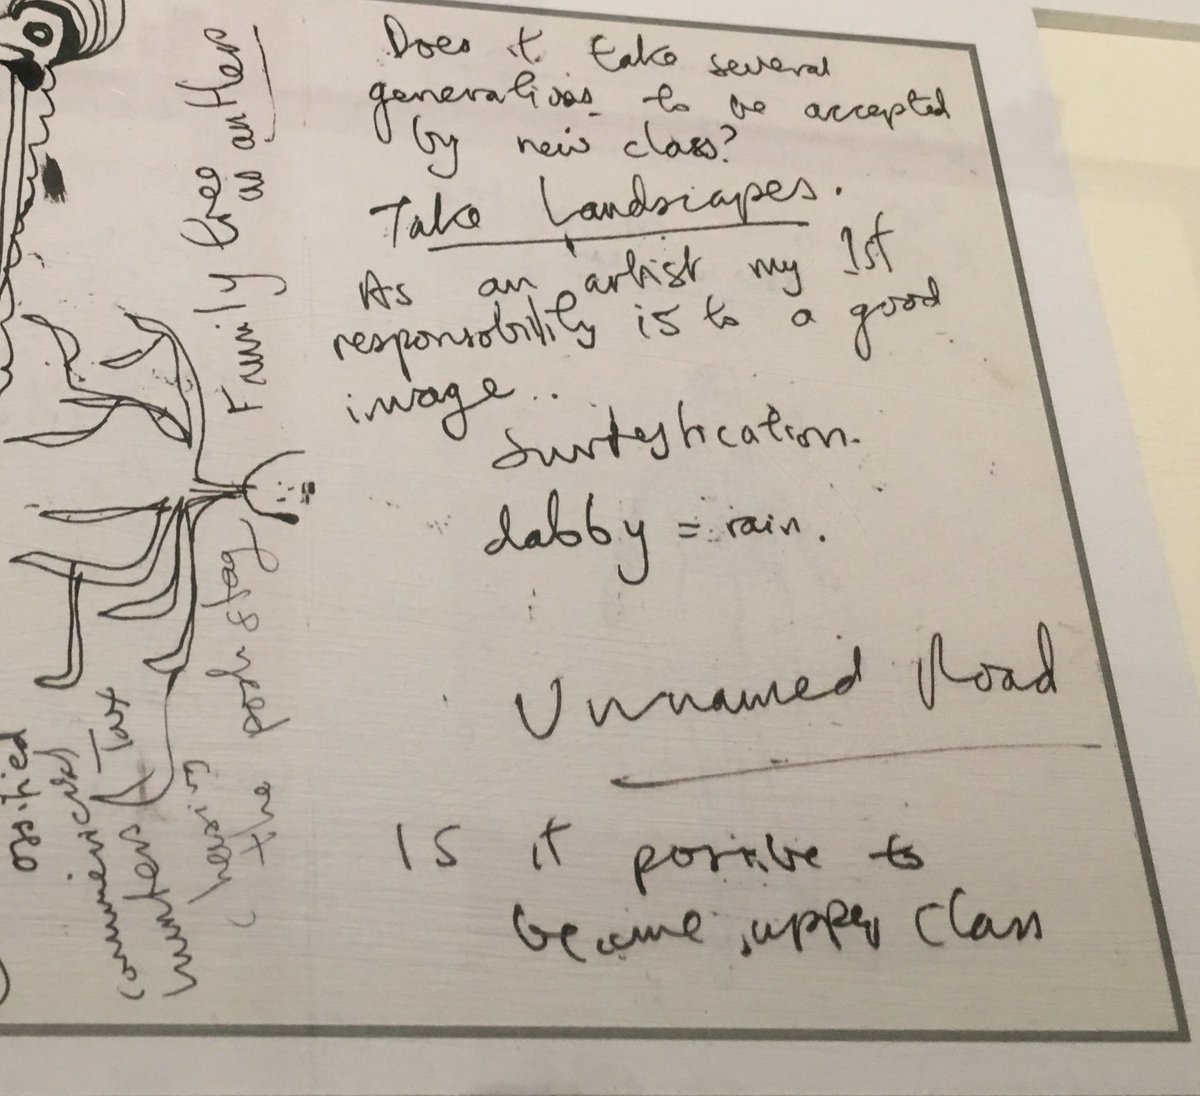 Does it take several
generations to be accepted
by new class?
Take Landscapes.
As an artist my 1st
responsobility is to a good
image..
dabby = rain.
Unnamed Road
Is it possible to
become upper class
Family tree
as antlers
the posh stag
ossified
numbers & Tax